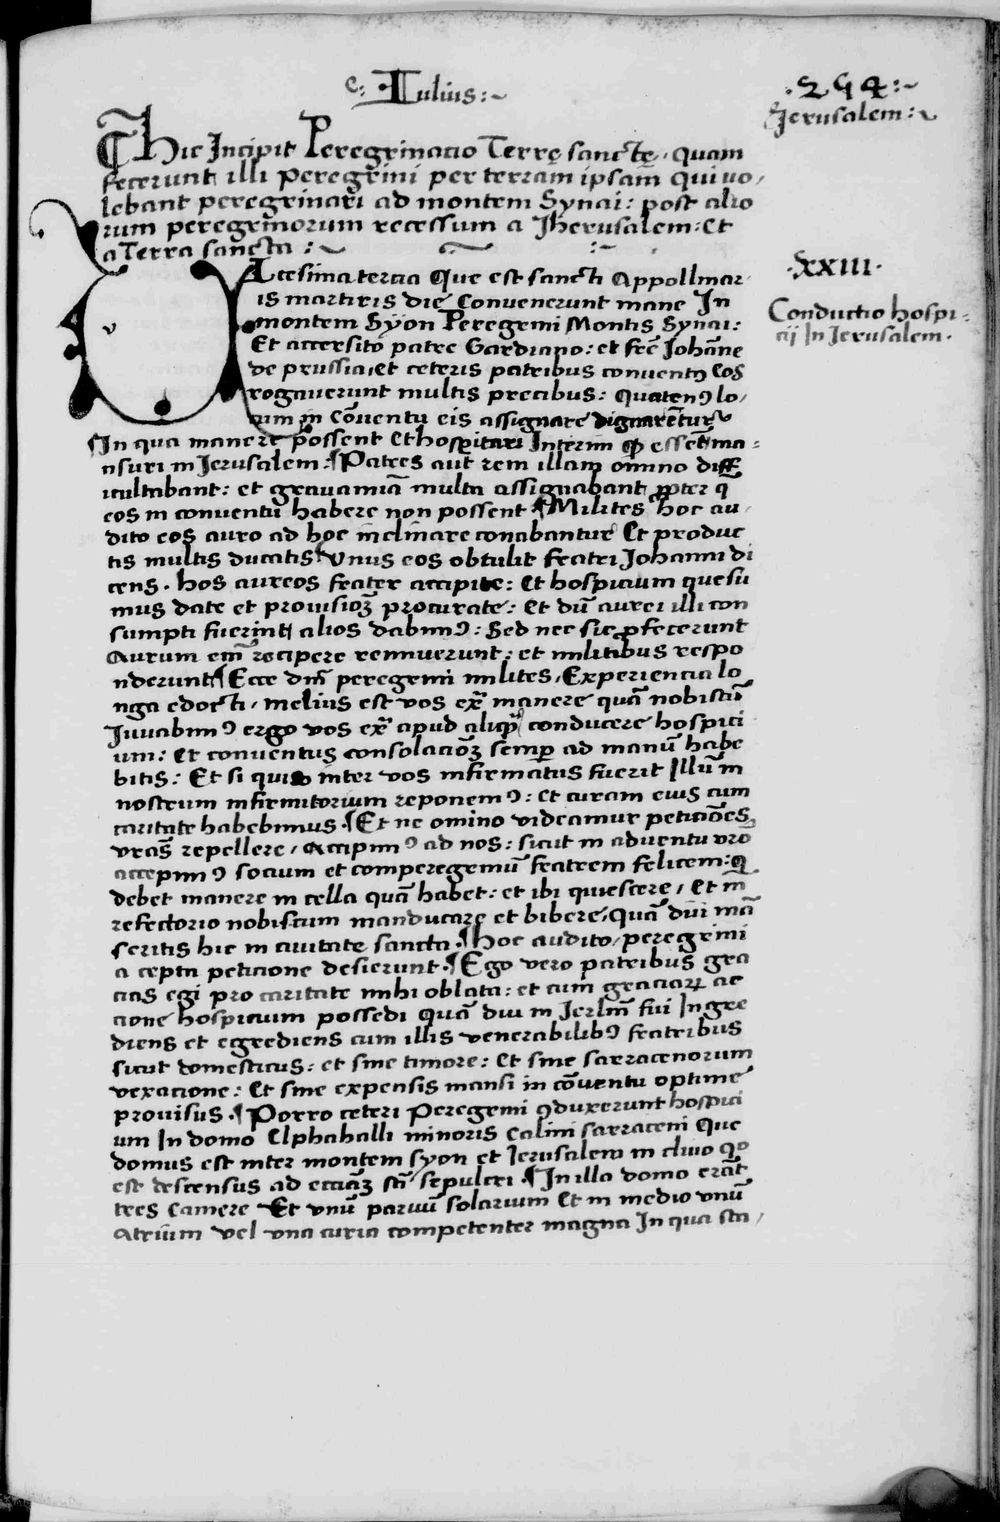 C: Iulius:~
·254:~
Jerusalem:~
¶Hic Incipit Peregrinacio Terrę sanctę, quam
fecerunt illi peregrini per terram ipsam qui vo,
lebant peregrinari ad montem Synai: post alio
rum peregrinorum recessum a Jherusalem: et
a Terra sancta:~
Vicesima tercia que est sancti Appollinar
is martiris die Convenerunt mane In
montem Syon Peregrini Montis Synai:
Et accersito patre Gardiano: et frē Johāne
de prussia, et ceteris patribus conventꝰ eos
rogaverunt multis precibus: quatenꝰ lo,
cum in cōventu eis assignare dignarētur
·XXIII·
Conductio hospi:
cij In Jerusalem.
In qua manere possent et hospitari Interim ꝙ essēt ma:
nsuri in Jerusalem: ¶Patres aūt rem illam omīno diff
icultabant: et gravamīa multa assignabant ꝓpter q̄
eos in conventu habere non possent ¶Milites hoc au,
dito eos auro ad hoc inclinare conabantur Et produc
tis multis ducatis Unus eos obtulit fratri Johanni di
cens. hos aureos frater accipite: Et hospicium quesu
mus date et provisioꝫ procurate: Et dū aurei illi con
sumpti fuerint alios dabimꝰ: Sed nec sic ꝓfecerunt
Aurum em̄ recipere rennuerunt: et militibus respo
nderunt ¶Ecce dn̄i peregrini milites, Experiencia lo
nga edocti, melius est vos ex̄ manere quā nobiscū
Juvabimꝰ ergo vos ex̄ apud aliq̄ conducere hospici
um: Et conventus consolacioꝫ semꝑ ad manū habe
bitis: Et si quis inter vos infirmatus fuerit Illū in
nostrum infirmitorium reponemꝰ: et curam eius cum
caritate habebimus. ¶Et ne omino videamur peticiōes
vrās repellere, Accipimꝰ ad nos: sicut in adventu vrō
accepimꝰ socium et comperegrinū fratrem felicem: q̄
debet manere in cella quā habet: et ibi quiescere, Et in̄
refectorio nobiscum manducare et bibere, quādiu mā
seritis hic in civitate sancta. ¶Hoc audito, peregrini
a cepta peticione desierunt. ¶Ego vero patribus gra
cias egi pro caritate mihi oblata: et cum graciaꝝ ac
cione hospicium possedi quā diu in Jerl̄m fui Ingre
diens et egrediens cum illis venerabilibꝰ fratribus
sicut domesticus: et sine timore: Et sine sarracenorum
vexacione: Et sine expensis mansi in cōventu optime
provisus. ¶Porro ceteri Peregrini ꝯduxerunt hospici
um In domo Elphahalli minoris Calini sarraceni Que
domus est inter montem syon et Jerusalem in clivo qo
est descensus ad ecciāꝫ sc̄i sepulcri. ¶In illa domo erāt
tres Camere Et unū parvū solarium Et in medio unū
atrium vel una curia competenter magna In qua sta,